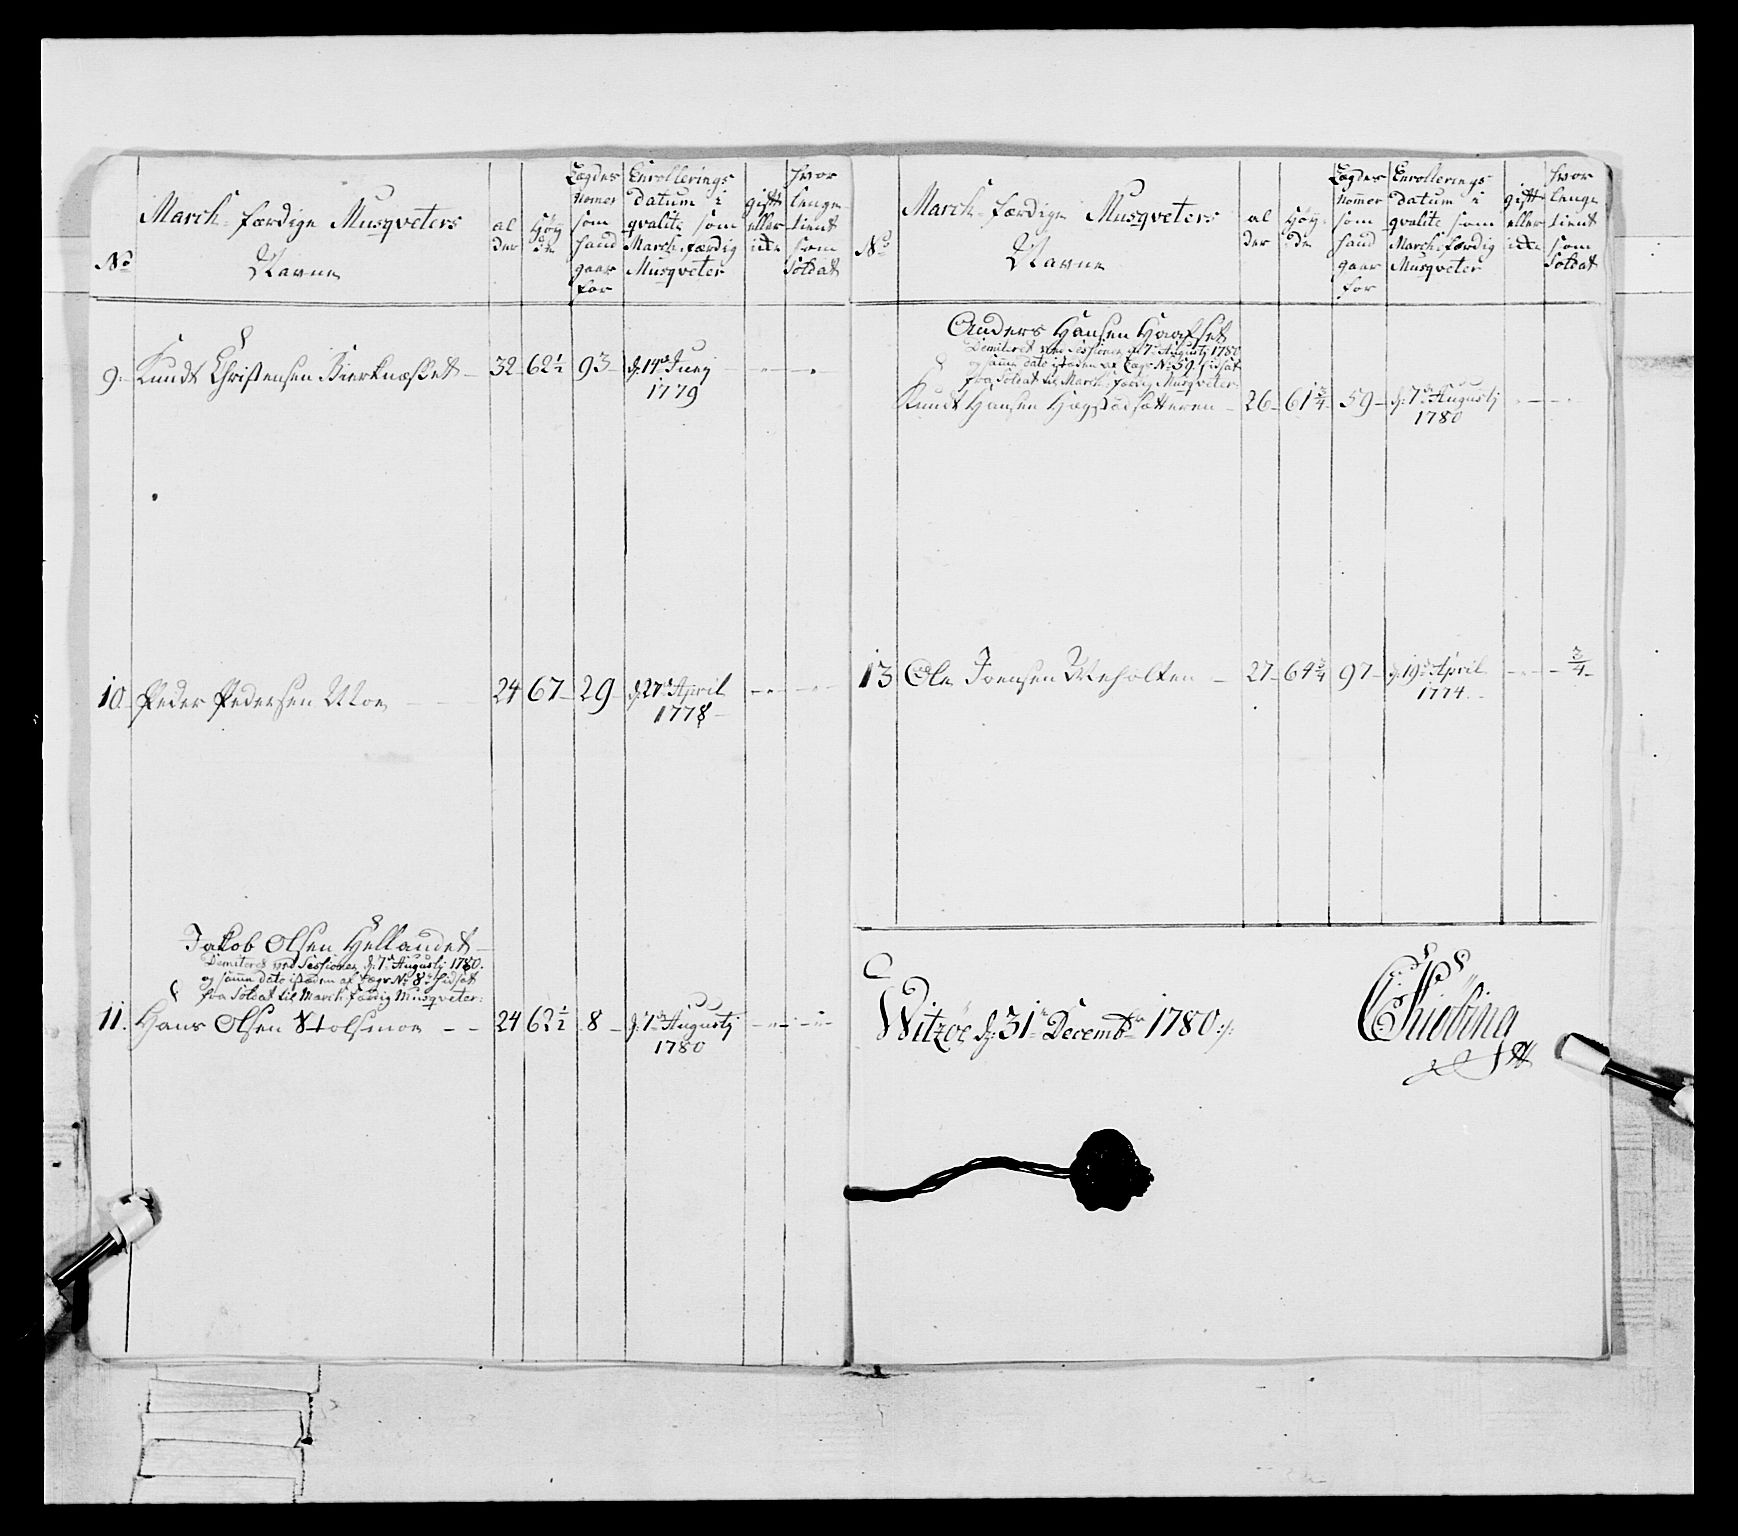 No
March-færdige Musqveters
Navne
al
der
Høy
de
Lægdes
Nomer
som
hand
gaar
for
Enrollerings
datum i
qvalite som
March-færdig
Musqveter
gift
eller
icke
hvor
lenge
tient
som
Soldat
9. Knudt Christensen Bierknæsset - 32 - 62½ 93 d: 14de Junij
1779
10. Peder Pedersen Moe - 24 67 - 29 - d: 27de April
1778 -
Jakob Olsen Hellandet -
Demiteret ved Sessionen d: 7de Augustj 1780.
og samme dato istæden af Lægd No 8 hidsat
fra Soldat til March-færdig Musqveter:
11. Hans Olsen Stolsmoe - - 24 62½ 8 - d: 7de Augustj
1780
No
March-færdige Musqveters
Navne
al
der
Høy-
de
Lægdes
Nomer
som
hand
gaar
for
Enrollerings
datum i
qvalite som
March-færdig
Musqveter
gift
eller
icke
hvor
lenge
tient
som
Soldat
Anders Hansen
Demiteret ved Sessionen d: 7de Augustj 1780
og samme dato istæden af Lægd No 59 hidsat
fra Soldat til March-færdig Musqveter:
Knudt Hansen - 26 - 61¾ - 59 - d: 7de Augustj
1780
13 Ole Ivensen - 27 - 64¾ 97 - d: 19de April
1774 - ¾ -
Witzöe d: 31te Decembr 1780